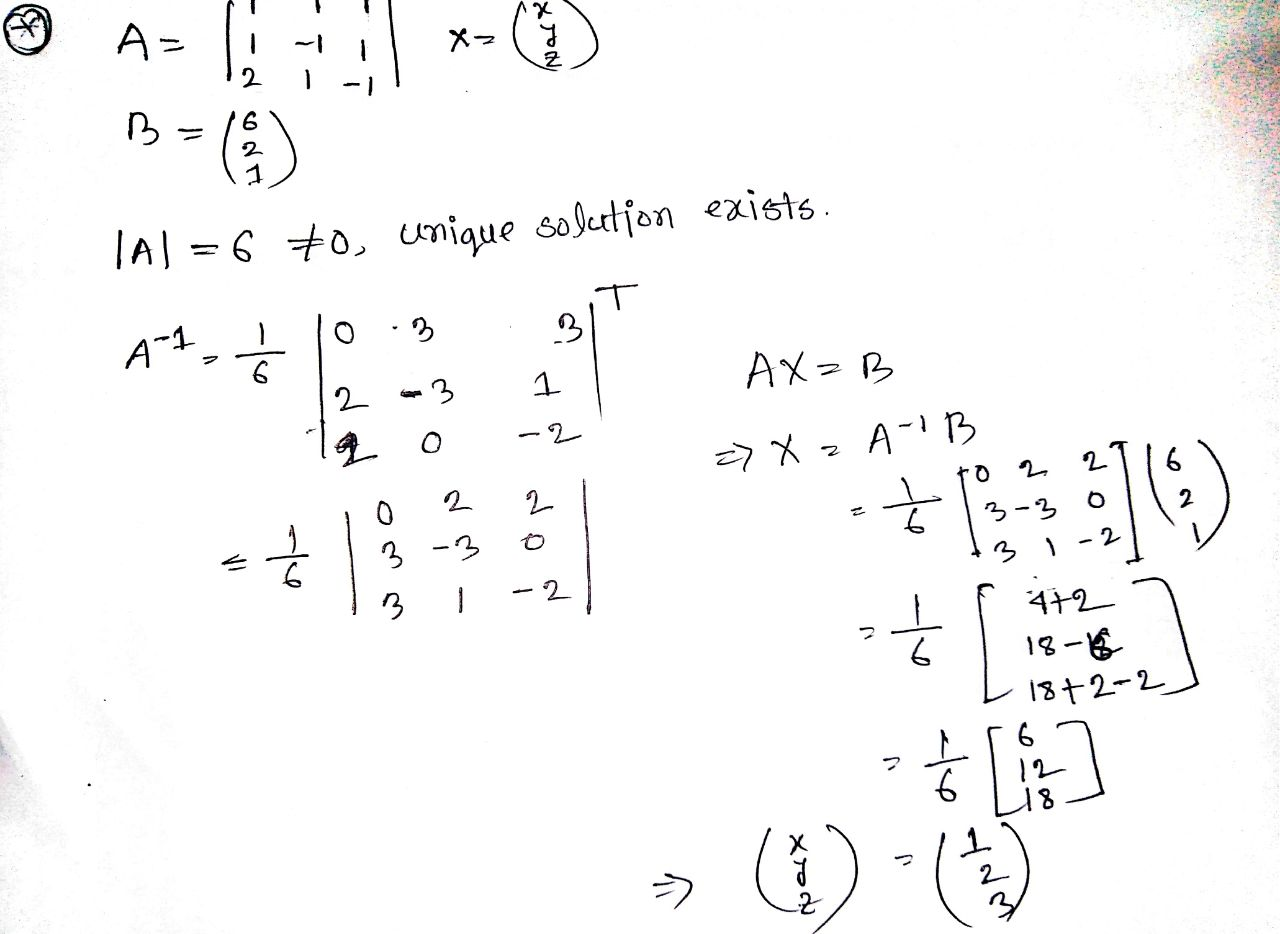 A = | 1 1 1 | X = ( x
| 1 -1 1 | y
| 2 1 -1 | z )
B = ( 6
2
1 )
|A| = 6 ≠ 0, unique solution exists.
A⁻¹ = 1/6 | 0 3 3 |ᵀ
| 2 -3 1 |
| 2 0 -2 |
= 1/6 | 0 2 2 |
| 3 -3 0 |
| 3 1 -2 |
AX = B
⇒ X = A⁻¹ B
= 1/6 [ 0 2 2 ] ( 6
[ 3 -3 0 ] 2
[ 3 1 -2 ] 1 )
= 1/6 [ 4+2
18-6
18+2-2 ]
= 1/6 [ 6
12
18 ]
⇒ ( x = ( 1
y 2
z ) 3 )